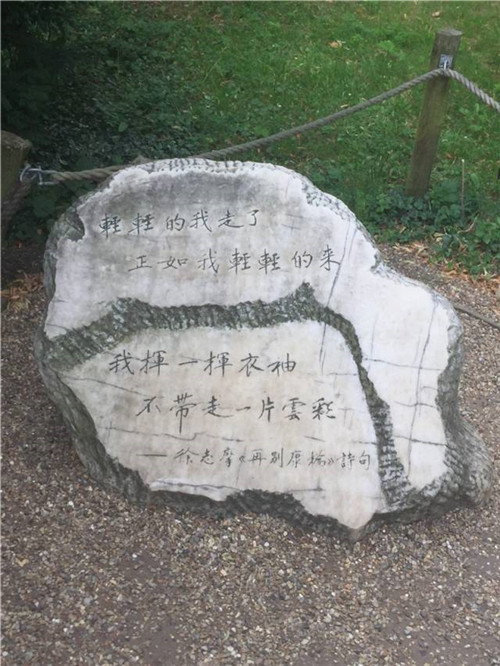 輕輕的我走了
正如我輕輕的来
我揮一揮衣袖
不带走一片雲彩
——徐志摩《再别康桥》詩句